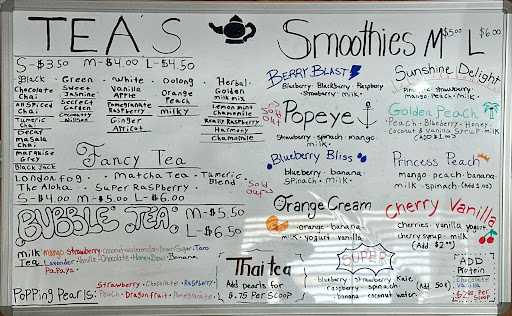 TEA'S
S-$3.50 M-$4.00 L-$4.50
Black
Chocolate
Chai
All Spiced
Chai
Tumeric
Chai
Decaf
Masala
Chai
Marquise
Grey
Black Jack
Green
Sweet
Jasmine
Secret
Garden
White
Vanilla
Apple
Pomegranate
Raspberry
Ginger
Apricot
Oolong
Orange
Peach
Milky
Herbal
Golden
Milk mix
Lemon mint
Chamomile
Really Raspberry
Harmony
Chamomile
Sold
out
Fancy Tea
London fog · Matcha Tea · Tumeric
Blend
The Aloha · Super Raspberry
Sold
out
S-$4.00 M-$5.00 L-$6.00
BUBBLE TEA
M-$5.50
L-$6.50
Milk
Tea
mango · Strawberry · Coconut · Watermelon · Brown Sugar · Taro
Lavender · Vanilla · Chocolate · HoneyDew · Banana
Papaya
Popping Pearls:
Strawberry · Chocolate · Raspberry
Peach · Dragonfruit · Pomegranate
Thai tea
Add pearls for
$.75 Per Scoop
Smoothies M $5.00 L $6.00
BERRY BLAST
Blueberry · Blackberry · Raspberry
· Strawberry · milk ·
Popeye
Strawberry · spinach · mango
· milk ·
Blueberry Bliss
blueberry · banana ·
spinach · milk ·
Orange Cream
orange · banana ·
milk · yogurt · vanilla
Sunshine Delight
Pineapple · strawberry ·
mango · Peach · Milk ·
Golden Peach
· Peach · Blueberry · Honey ·
Coconut & Vanilla Syrup · milk
(ADD $1.00)
Princess Peach
mango · peach · banana ·
milk · spinach · (Add 1.00)
Cherry Vanilla
cherries · vanilla yogurt
cherry syrup · milk
(Add $2.00)
SUPER
blueberry · strawberry · Kale
raspberry · spinach ·
· banana · coconut water ·
(Add .50¢)
ADD
Protein
Chocolate
Vanilla
Per Scoop